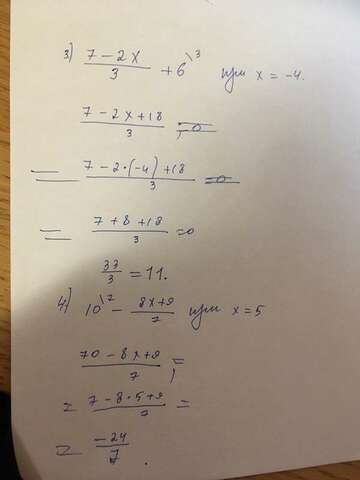 3) (7 - 2x)/3 + 6\3 при x = -4.
(7 - 2x + 18)/3 =
= (7 - 2·(-4) + 18)/3 =
= (7 + 8 + 18)/3 =
33/3 = 11.
4) 10\7 - (8x + 9)/7 при x = 5
(70 - 8x + 9)/7 =
= (7 - 8·5 + 9)/7 =
= -24/7.